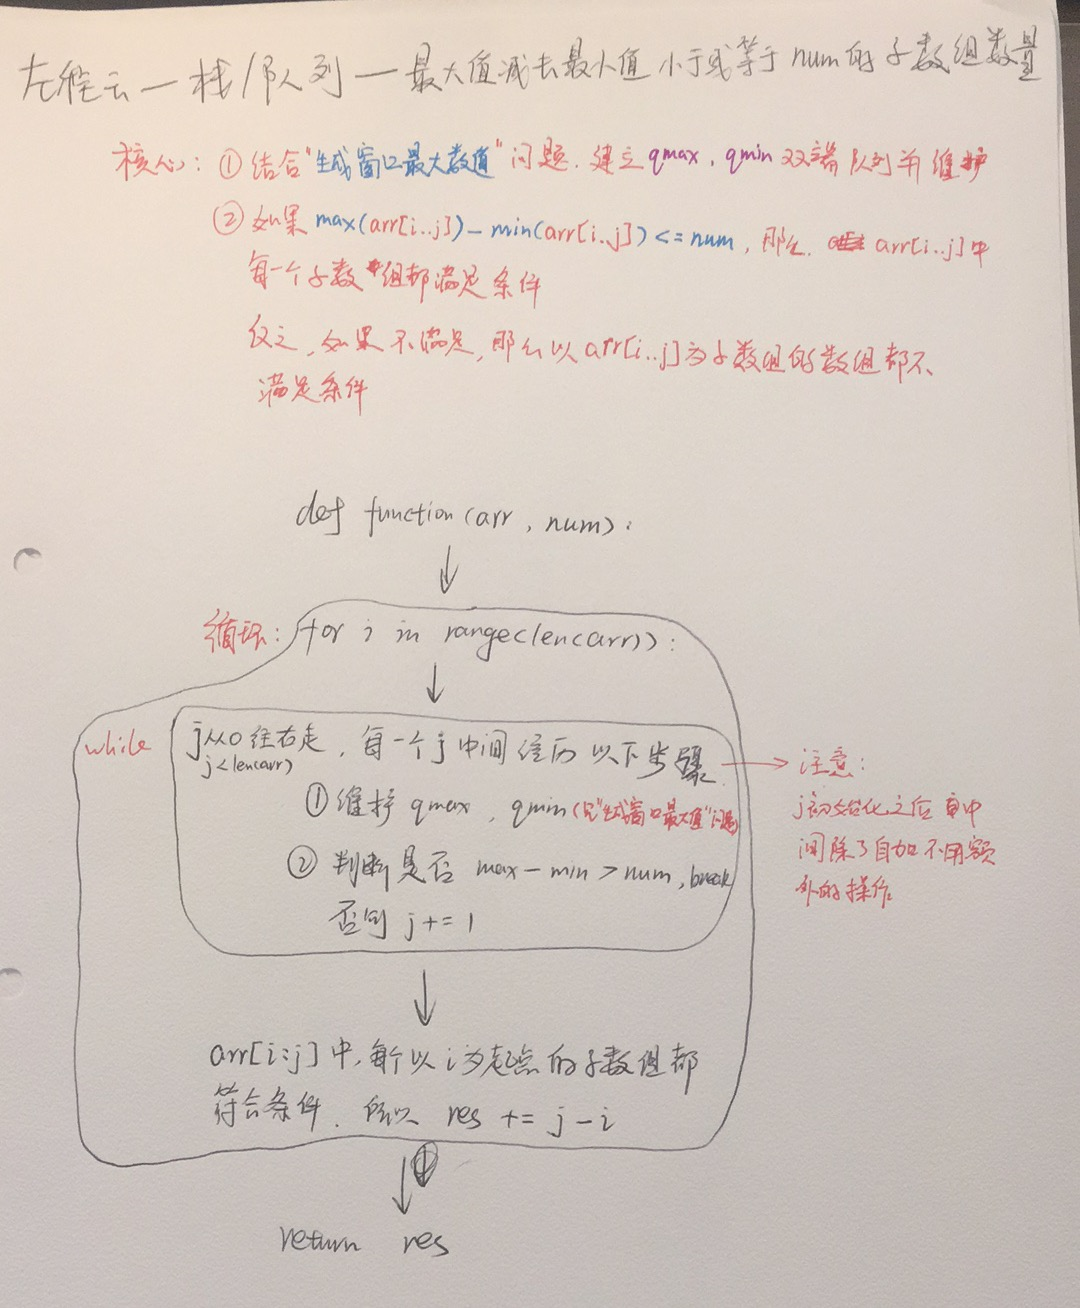 左程云一栈/队列一最大值减去最小值小于或等于num的子数组数量
核心:①结合"生成窗口最大数值"问题.建立qmax,qmin双端队列并维护
②如果max(arr[i..j])-min(arr[i..j])<=num,那么.arr[i..j]中
每一个子数组都满足条件
反之,如果不满足,那么以arr[i..j]为子数组的数组都不
满足条件
def function(arr,num):
循环:for i in range(len(arr)):
while
j从0往右走,每一个j中间经历以下步骤
j<len(arr)
①维护qmax,qmin(见"生成窗口最大值"问题)
②判断是否max-min>num,break
否则j+=1
注意:
j初始化之后中
间除了自加不用额
外的操作
arr[i:j]中,每个以i为起点的子数组都
符合条件.所以res+=j-i
return res